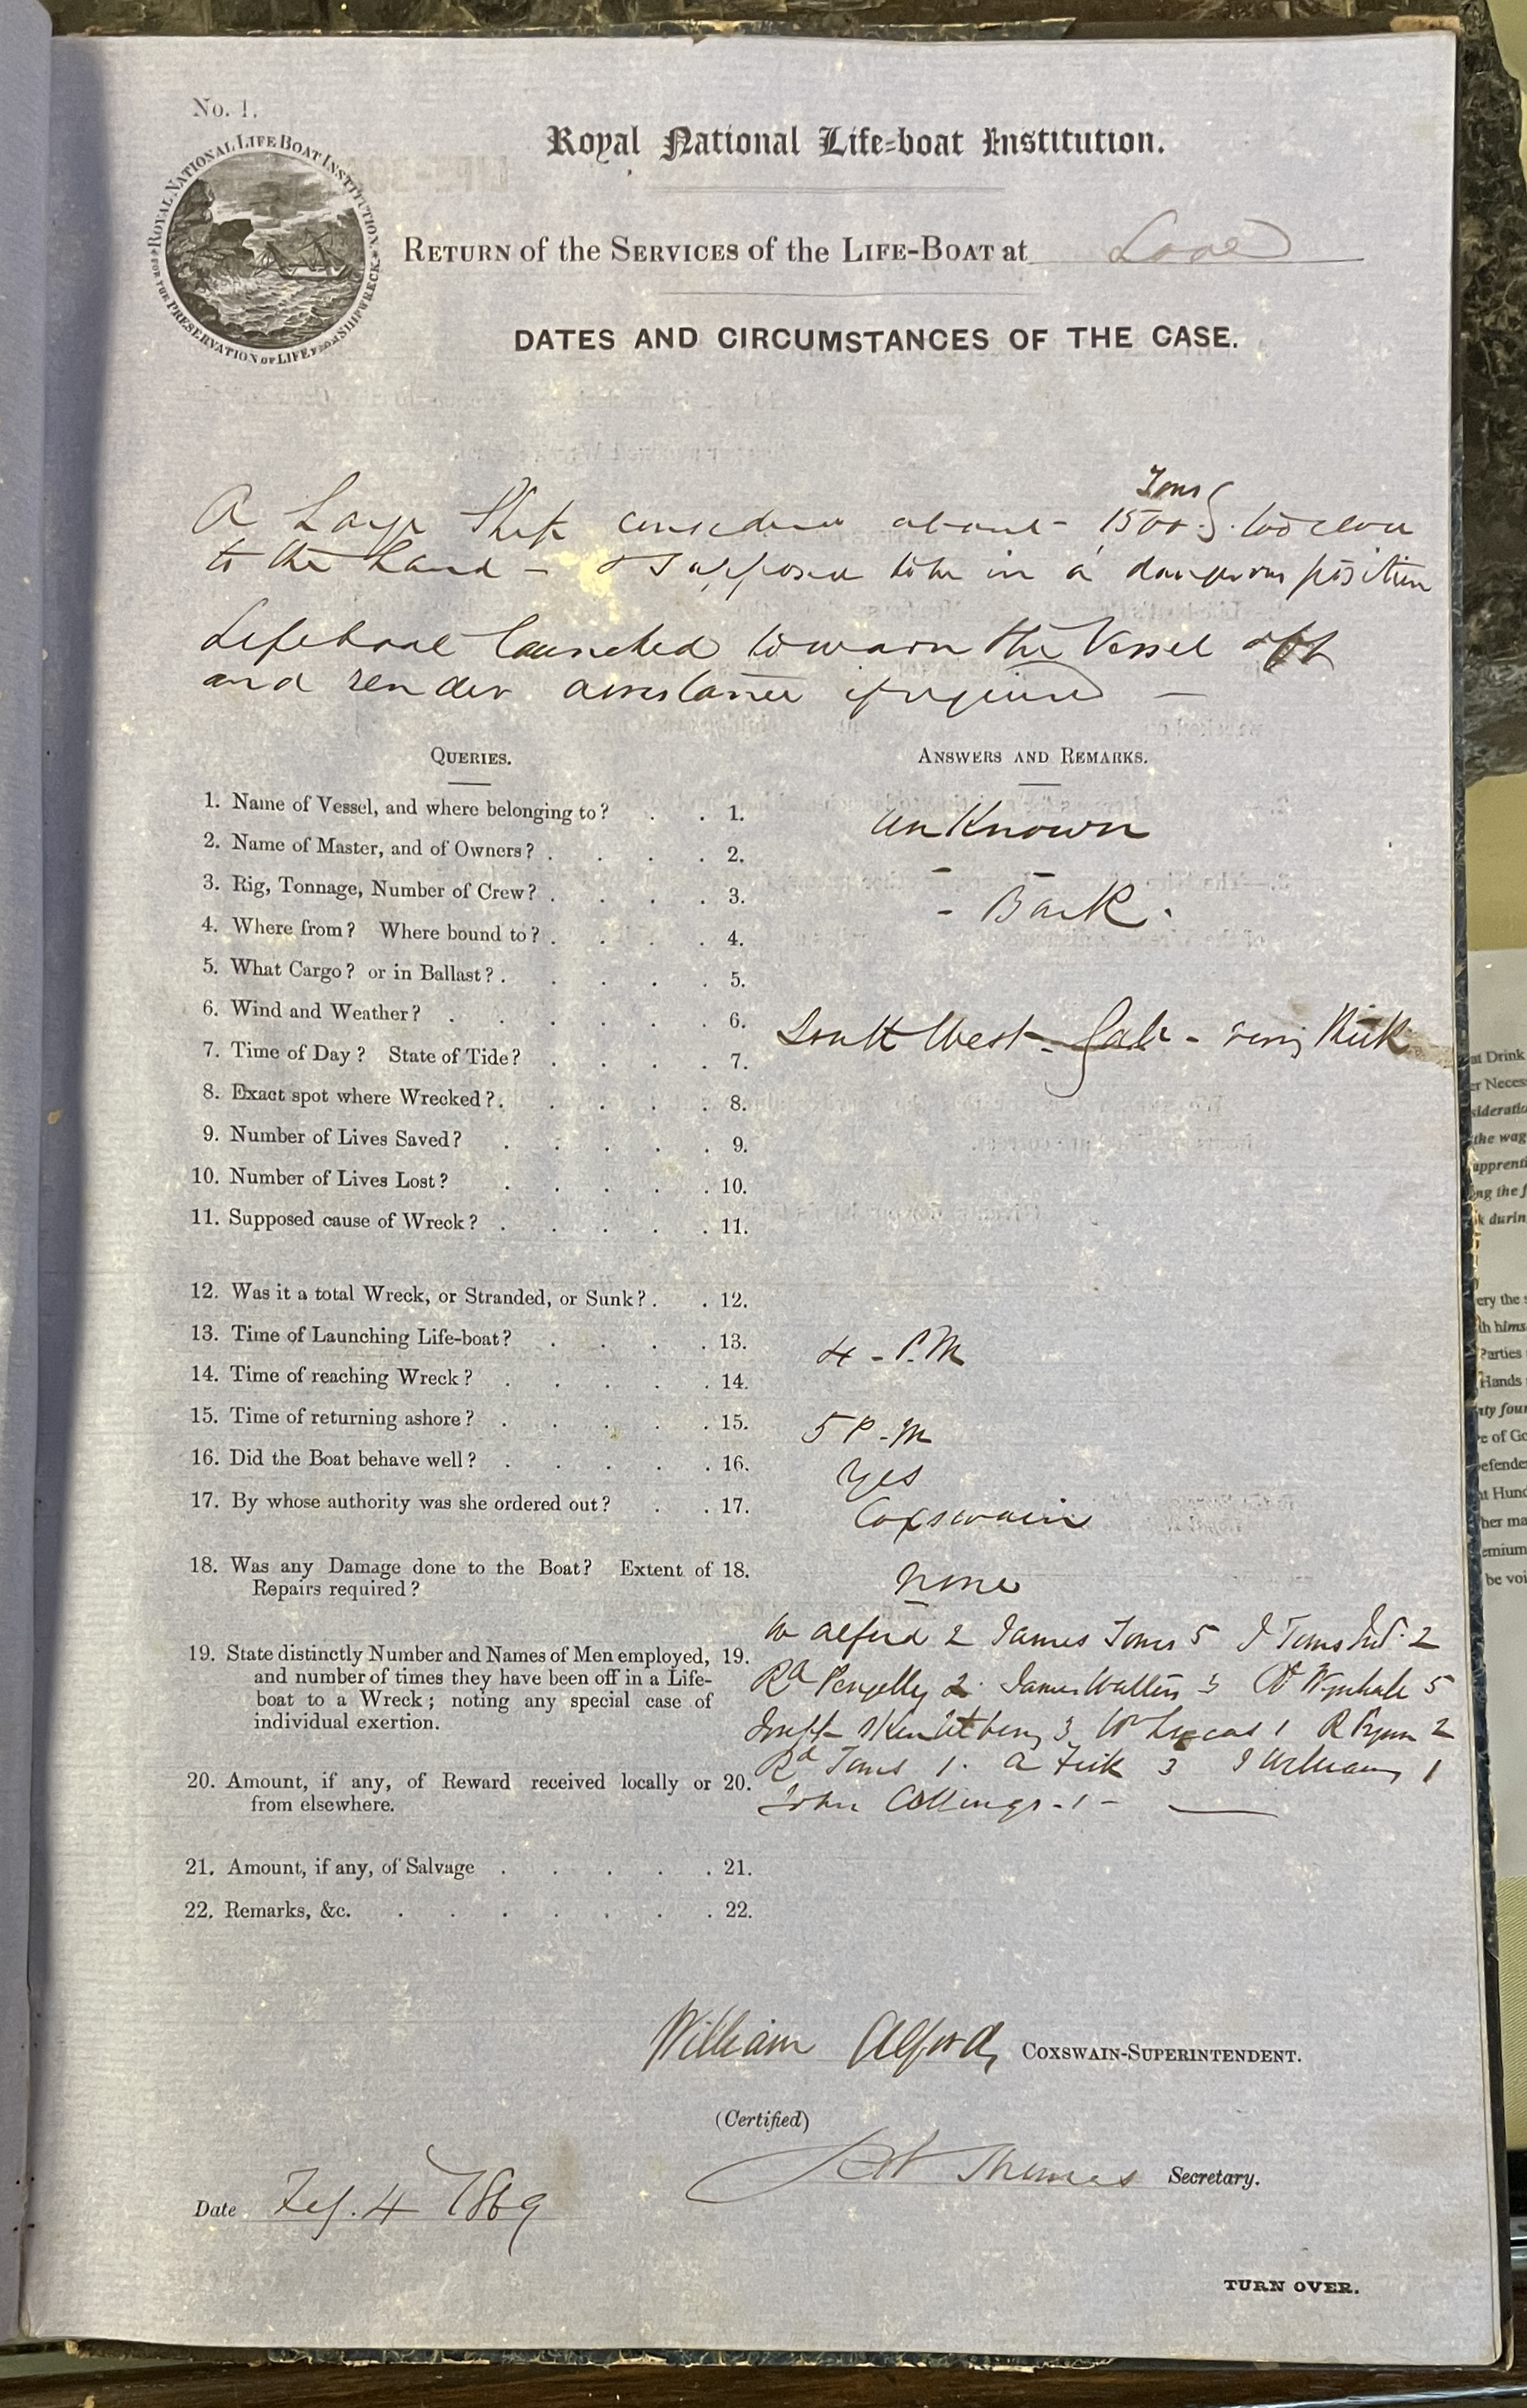 No. 1.
ROYAL NATIONAL LIFE BOAT INSTITUTION
FOR THE PRESERVATION OF LIFE FROM SHIPWRECK
Royal National Life-boat Institution.
RETURN of the SERVICES of the LIFE-BOAT at Looe
DATES AND CIRCUMSTANCES OF THE CASE.
Tons
A Large Ship considered about 1500 too close
to the Land - & supposed to be in a dangerous position
Lifeboat launched to warn the Vessel off
and render assistance if required -
QUERIES.
ANSWERS AND REMARKS.
1. Name of Vessel, and where belonging to? 1. unKnown
2. Name of Master, and of Owners? 2. - -
3. Rig, Tonnage, Number of Crew? 3. - Bark.
4. Where from? Where bound to? 4.
5. What Cargo? or in Ballast? 5.
6. Wind and Weather? 6. South West - Gale - very thick
7. Time of Day? State of Tide? 7.
8. Exact spot where Wrecked? 8.
9. Number of Lives Saved? 9.
10. Number of Lives Lost? 10.
11. Supposed cause of Wreck? 11.
12. Was it a total Wreck, or Stranded, or Sunk? 12.
13. Time of Launching Life-boat? 13. 4 - P.M
14. Time of reaching Wreck? 14.
15. Time of returning ashore? 15. 5 P.M
16. Did the Boat behave well? 16. Yes
17. By whose authority was she ordered out? 17. Coxswain
18. Was any Damage done to the Boat? Extent of 18. none
Repairs required?
W Alford 2 James Toms 5 J Toms Jur. 2
19. State distinctly Number and Names of Men employed, 19.
and number of times they have been off in a Life-
Rd Pengelly 2 James Walters 3 5
boat to a Wreck; noting any special case of
individual exertion.
Joseph 3 Wm Lucas 1 R Prynn 2
Rd Toms 1. A 3 J Williams 1
20. Amount, if any, of Reward received locally or 20.
from elsewhere.
John Collings - 1 -
21. Amount, if any, of Salvage 21.
22. Remarks, &c. 22.
William Alford, COXSWAIN-SUPERINTENDENT.
(Certified)
Thomas Secretary.
Date Feb. 4 1869
TURN OVER.
at Drink
er Neces
sideratio
the wag
apprenti
ng the f
k durin
ery the s
th hims
Parties
Hands
nty four
e of Go
efende
t Hund
her ma
emium
be voi